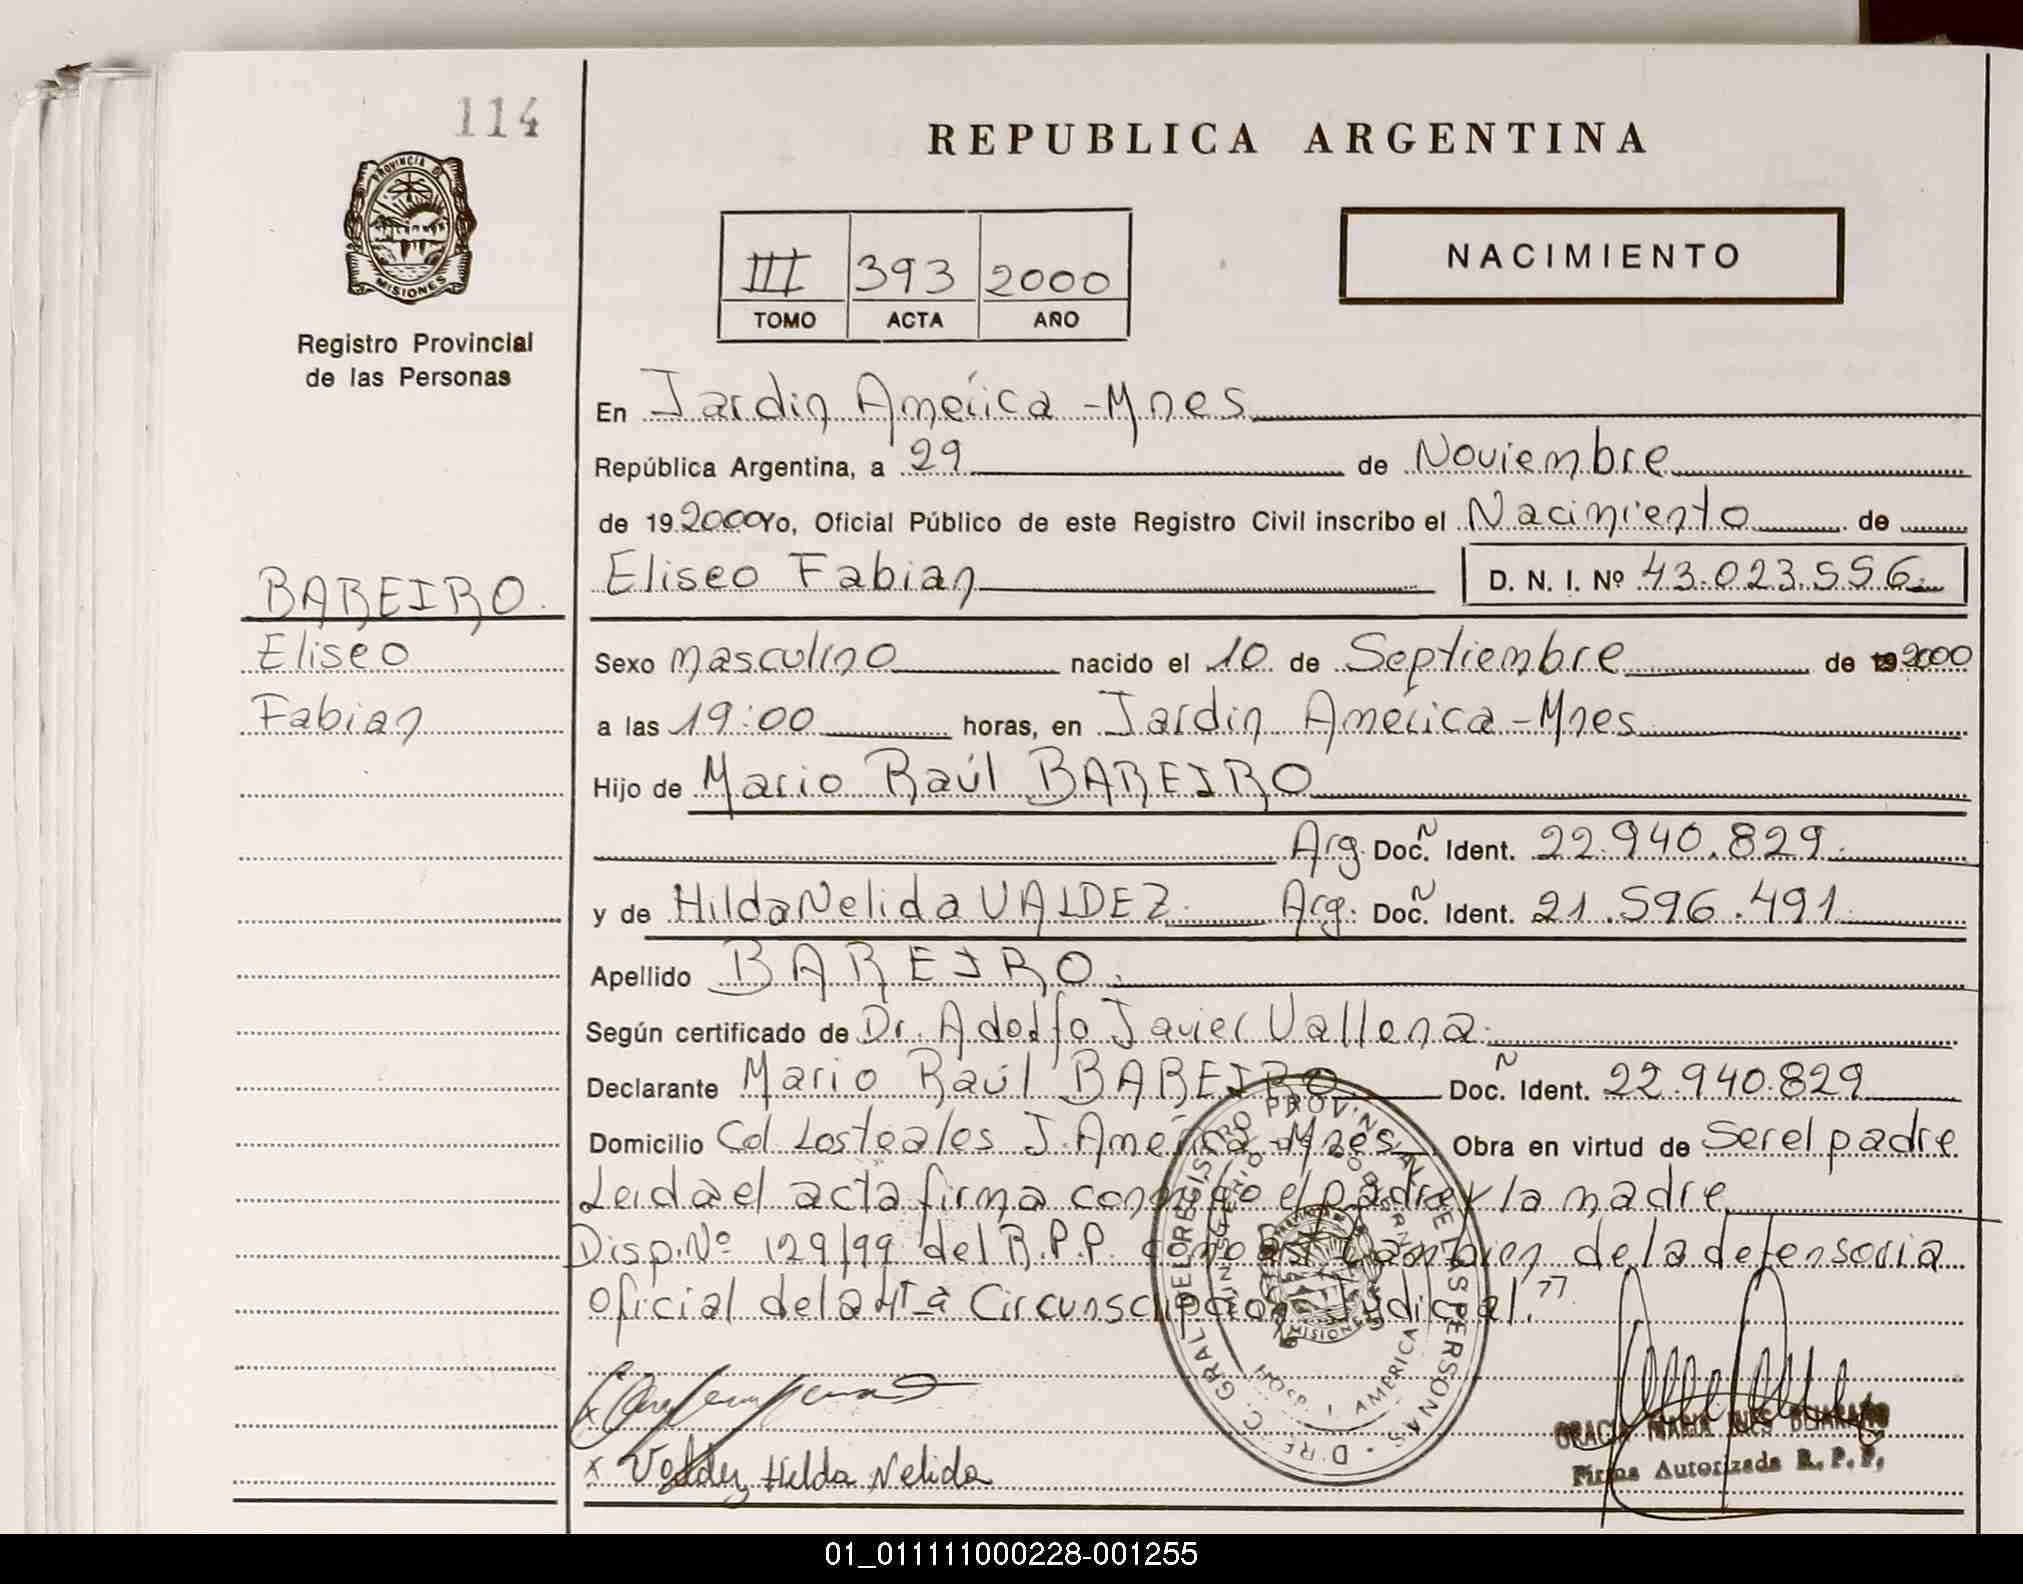 114
REPUBLICA ARGENTINA
PROVINCIA DE
MISIONES
III 393 2000
TOMO ACTA AÑO
NACIMIENTO
Registro Provincial
de las Personas
En Jardin América - Mnes
República Argentina, a 29 de Noviembre
de 19 2000 Yo, Oficial Público de este Registro Civil inscribo el Nacimiento de
BAREIRO.
Eliseo Fabian D. N. I. Nº 43.023.556.
Eliseo
Sexo masculino nacido el 10 de Septiembre de 19 2000
Fabian
a las 19:00 horas, en Jardin América - Mnes
Hijo de Mario Raúl BAREIRO
Arg. Doc. N Ident. 22.940.829.
y de Hilda Nelida VALDEZ. Arg. Doc. N Ident. 21.596.491.
Apellido BAREIRO.
Según certificado de Dr. Adolfo Javier Vallena.
Declarante Mario Raúl BAREIRO Doc. N Ident. 22.940.829
Domicilio Col Losteales J. América - Mnes Obra en virtud de Ser el padre
Leida el acta firma conmigo el padre y la madre
Disp. Nº 129/99 del R.P.P. como tambien de la defensoria
oficial de la 4ta Circunscripcion Judicial."
DIREC. GRAL. DEL REGISTRO PROVINCIAL DE LAS PERSONAS
MINISTERIO DE GOBIERNO
MISIONES
HOSP. J. AMERICA
x
x Valdez Hilda Nelida
GRACIA MARIA INES BEJARANO
Firma Autorizada R. P. P.
01_011111000228-001255